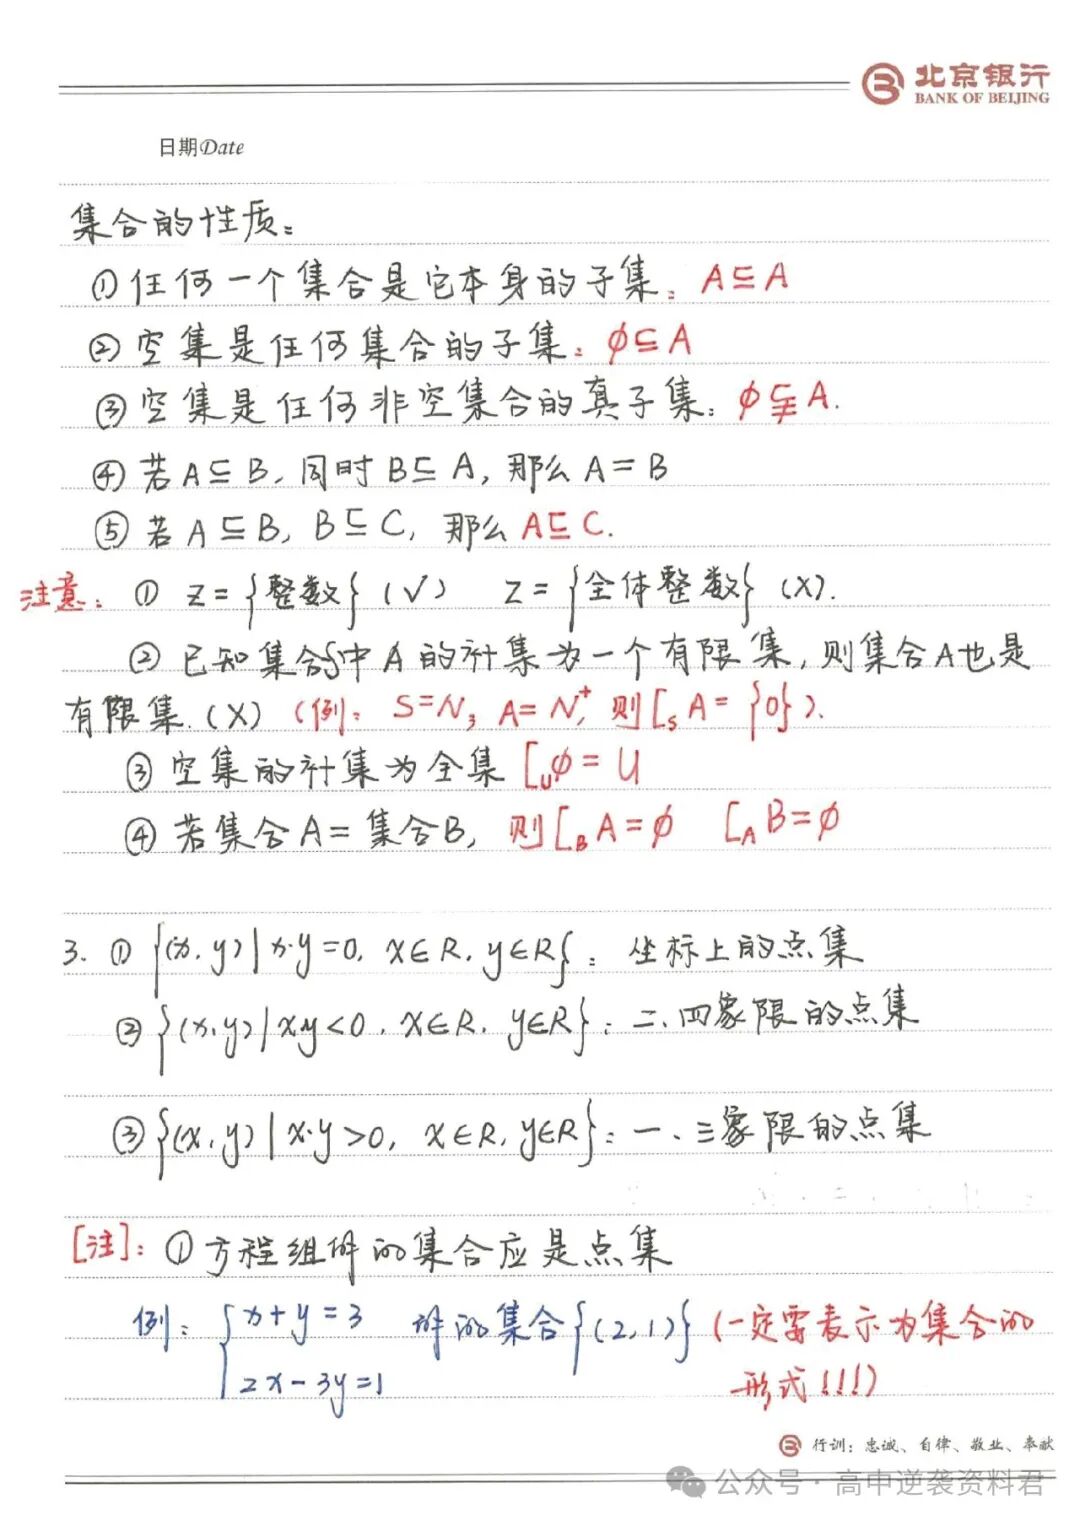 北京银行
BANK OF BEIJING
日期Date
集合的性质:
①任何一个集合是它本身的子集: A⊆A
②空集是任何集合的子集: ∅⊆A
③空集是任何非空集合的真子集: ∅⫋A.
④若A⊆B, 同时B⊆A, 那么A=B
⑤若A⊆B, B⊆C, 那么A⊆C.
注意: ① Z={整数} (√) Z={全体整数} (X).
②已知集合S中A的补集为一个有限集, 则集合A也是
有限集. (X) (例: S=N, A=N⁺, 则[ₛA={0}).
③空集的补集为全集 [ᵤ∅=U
④若集合A=集合B, 则[_B A=∅ [_A B=∅
3. ① {(x,y)|x·y=0, x∈R, y∈R}: 坐标上的点集
② {(x,y)|x·y<0, x∈R, y∈R}: 二、四象限的点集
③ {(x,y)|x·y>0, x∈R, y∈R}: 一、三象限的点集
[注]: ①方程组解的集合应是点集
例: { x+y=3 解的集合{(2,1)} (一定要表示为集合的
2x-3y=1 形式!!!)
行训: 忠诚、自律、敬业、奉献
公众号·高中逆袭资料君